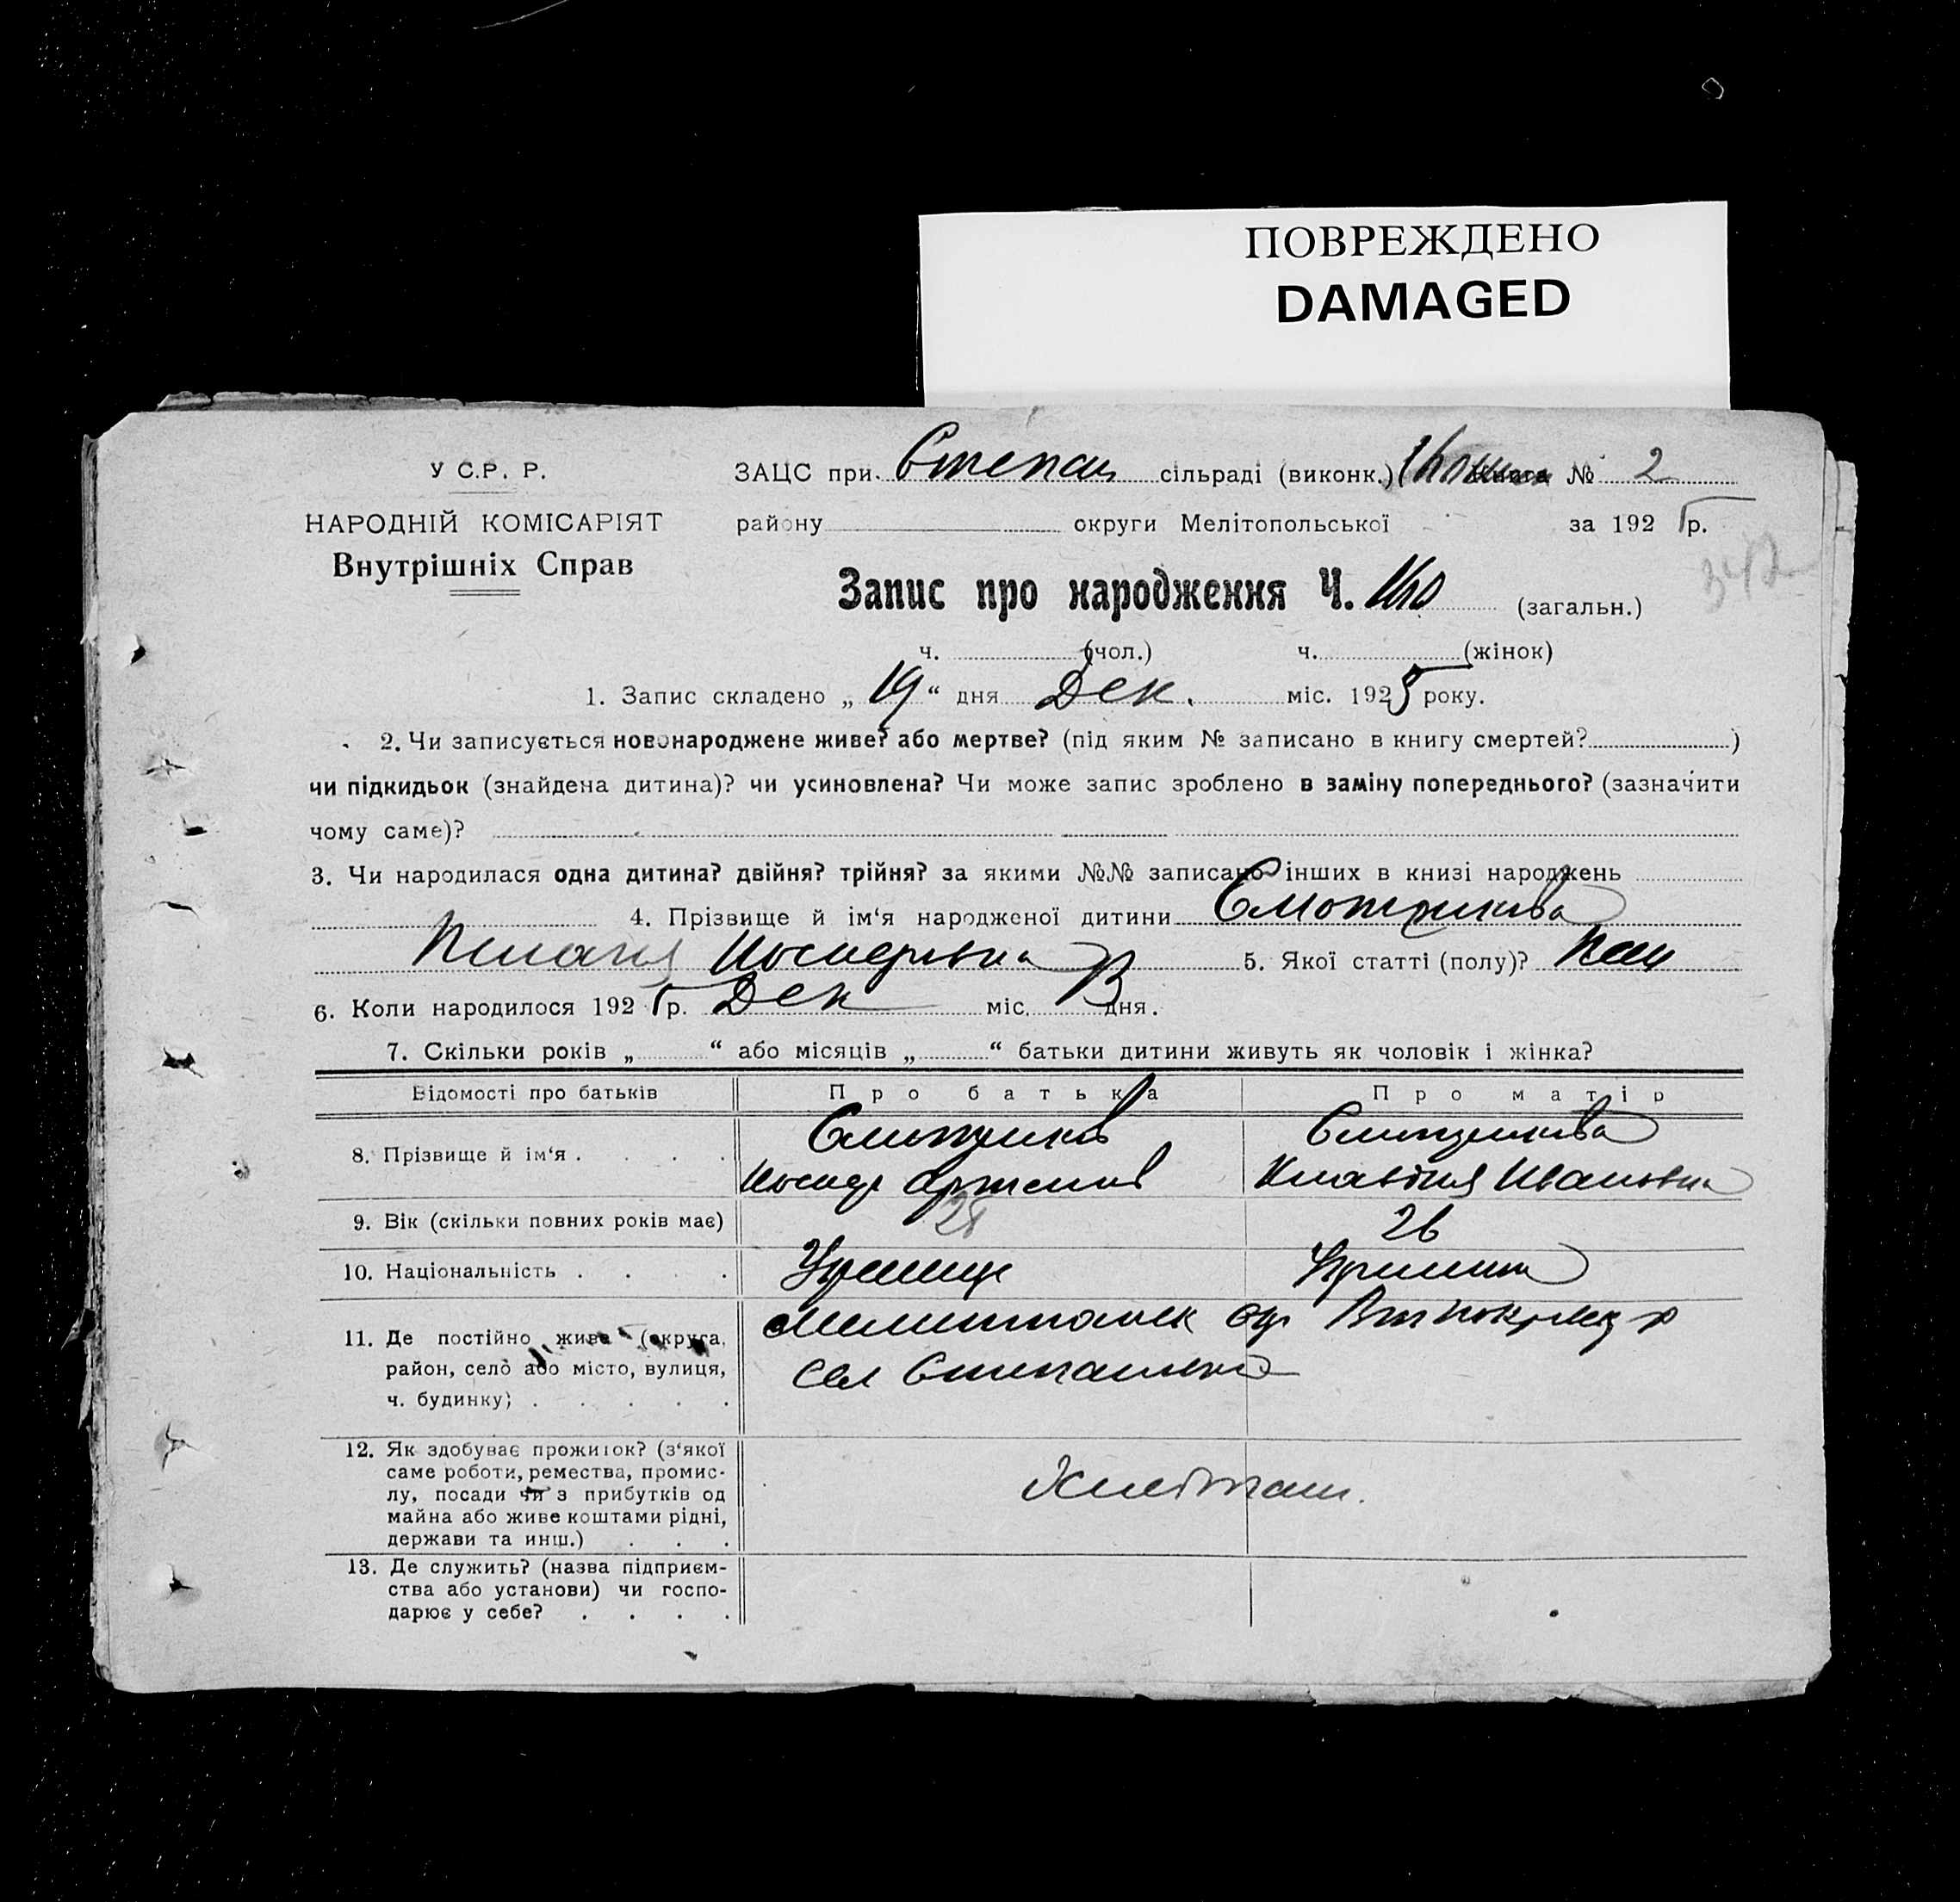 ПОВРЕЖДЕНО
DAMAGED
У С.Р. Р.
НАРОДНІЙ КОМІСАРІЯТ
Внутрішніх Справ
ЗАЦС при Степан сільраді (виконк.) Книга № 2
району округи Мелітопольської за 1925 р.
Запис про народження Ч. (загальн.)
342
ч. (чол.) ч. (жінок)
1. Запис складено „ 19 “ дня Дек. міс. 1925 року.
2. Чи записується новонароджене живе? або мертве? (під яким № записано в книгу смертей? )
чи підкидьок (знайдена дитина)? чи усиновлена? Чи може запис зроблено в заміну попереднього? (зазначити
чому саме)?
3. Чи народилася одна дитина? двійня? трійня? за якими №№ записано інших в книзі народжень
4. Прізвище й ім‘я народженої дитини
5. Якої статті (полу)?
6. Коли народилося 1925 р. Дек міс. дня.
7. Скільки років „ “ або місяців „ “ батьки дитини живуть як чоловік і жінка?
Відомості про батьків Про батька Про матір
8. Прізвище й ім‘я . . . .
Клавдія Ивановна
9. Вік (скільки повних років має) 28 26
10. Національність . . . .
11. Де постійно живе (округа,
район, село або місто, вулиця,
ч. будинку) . . . . .
сел
12. Як здобуває прожиток? (з‘якої
саме роботи, ремества, промис-
лу, посади чи з прибутків од
майна або живе коштами рідні,
держави та инш.) . . .
Хлебопаш.
13. Де служить? (назва підприєм-
ства або установи) чи госпо-
дарює у себе? . . . .